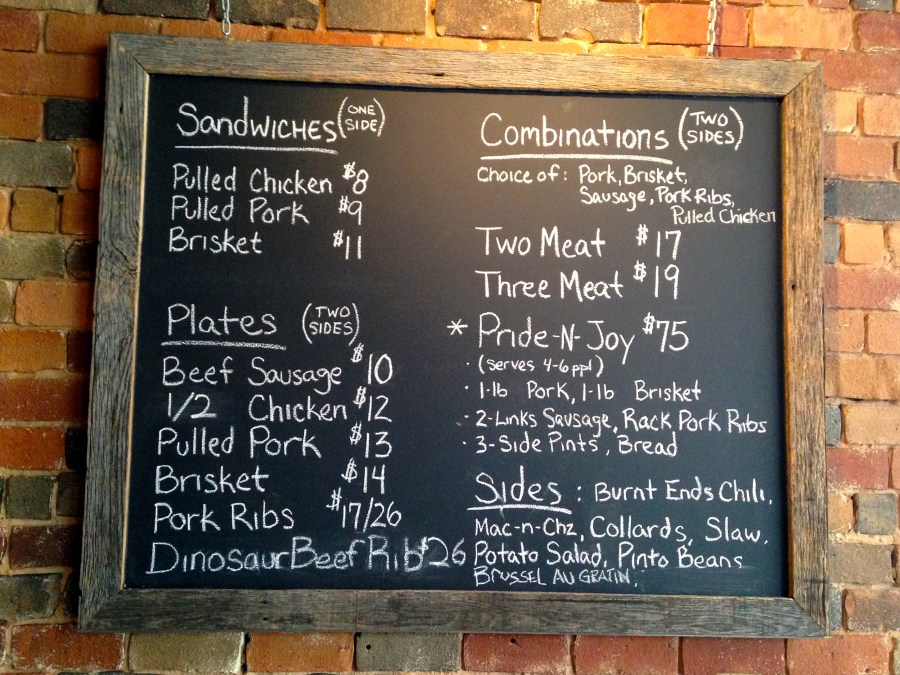 Sandwiches (ONE SIDE)
Pulled Chicken $8
Pulled Pork $9
Brisket $11
Plates (TWO SIDES)
Beef Sausage $10
1/2 Chicken $12
Pulled Pork $13
Brisket $14
Pork Ribs $17/26
Dinosaur Beef Rib $26
Combinations (TWO SIDES)
Choice of: Pork, Brisket,
Sausage, Pork Ribs,
Pulled Chicken
Two Meat $17
Three Meat $19
* Pride-N-Joy $75
· (serves 4-6 ppl)
· 1-lb Pork, 1-lb Brisket
· 2-Links Sausage, Rack Pork Ribs
· 3-Side Pints, Bread
Sides : Burnt Ends Chili,
Mac-n-Chz, Collards, Slaw,
Potato Salad, Pinto Beans
BRUSSEL AU GRATIN,